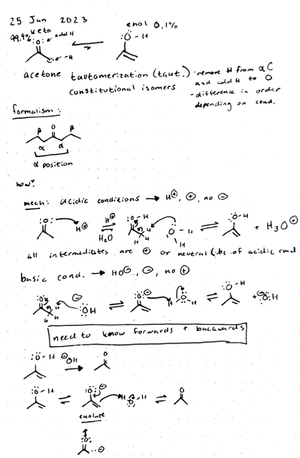 25 Jan 2023
enol 0.1%
99.9% keto
add H
O-H
-H
acetone tautomerization (taut.)
constitutional isomers
-remove H from αC and add H to O
-difference in order depending on cond.
formalism:
β O β
α α
α position
how?
mech: acidic conditions → H⊕, ⊕, no ⊖
H⊕ H⊕ H₂O O-H + H₃O⊕
all intermediates are ⊕ or neutral (b/c of acidic cond
basic cond. → HO⊖, ⊖, no ⊕
⊖:OH O⊖ H-O-H O-H + ⊖:OH
need to know forwards + backwards
O-H ⊖OH O
O-H O⊖ H-O-H O
enolate
O ⊖